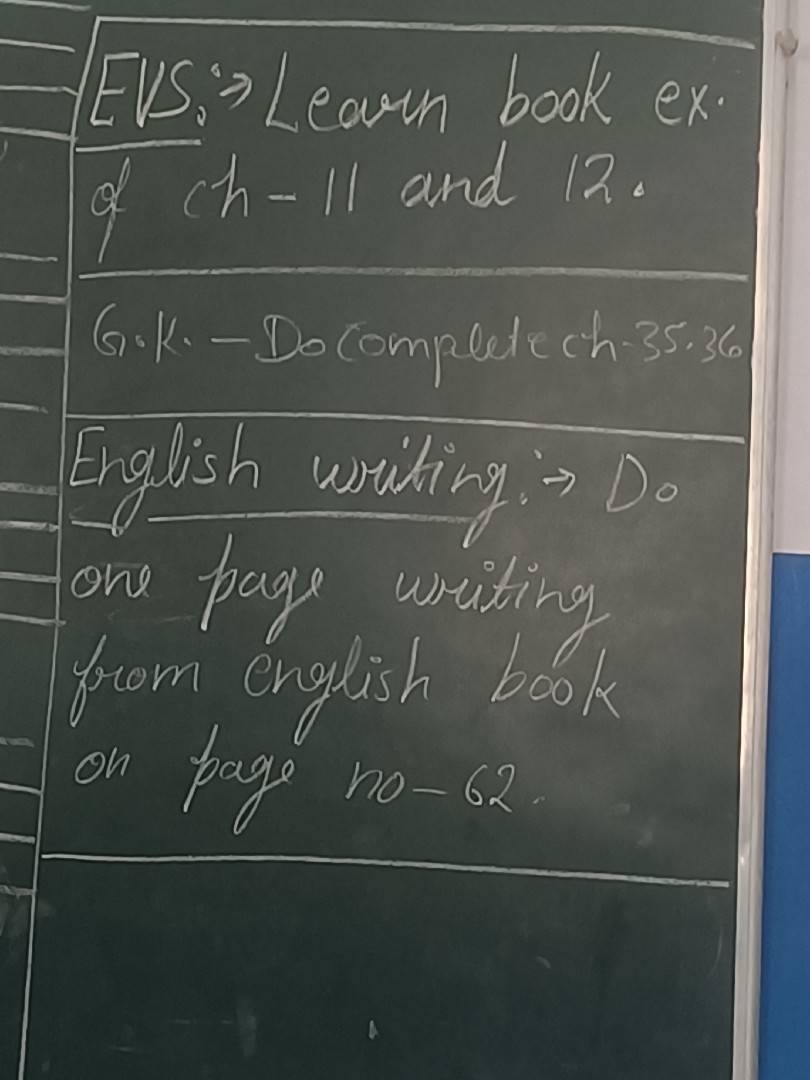 EVS:→ Learn book ex.
of ch-11 and 12.
G.K. - Do complete ch-35.36
English writing:→ Do
one page writing
from english book
on page no-62.